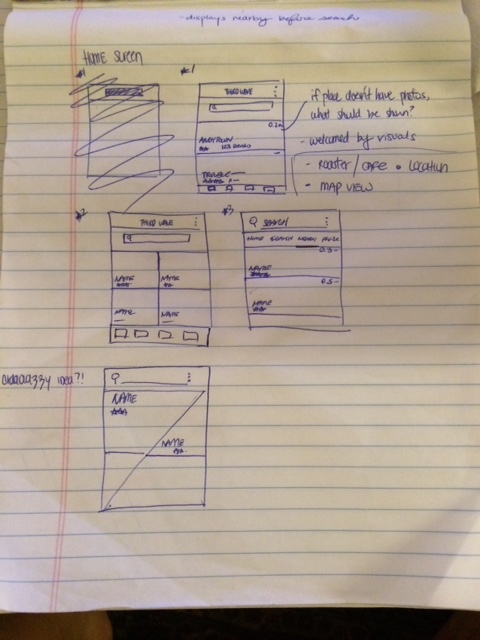 - displays nearby before search
Home Screen
#1
#1
THIRD WAVE
0.2m
ANDYTOWN
TROUBLE
if place doesn't have photos,
what should be shown?
- welcomed by visuals
- ROASTER/CAFE • LOCATION
- MAP VIEW
#2
THIRD WAVE
NAME
NAME
NAME
NAME
#3
SEARCH
HOME SEARCH
0.3
NAME
0.5
NAME
idea?!
NAME
NAME